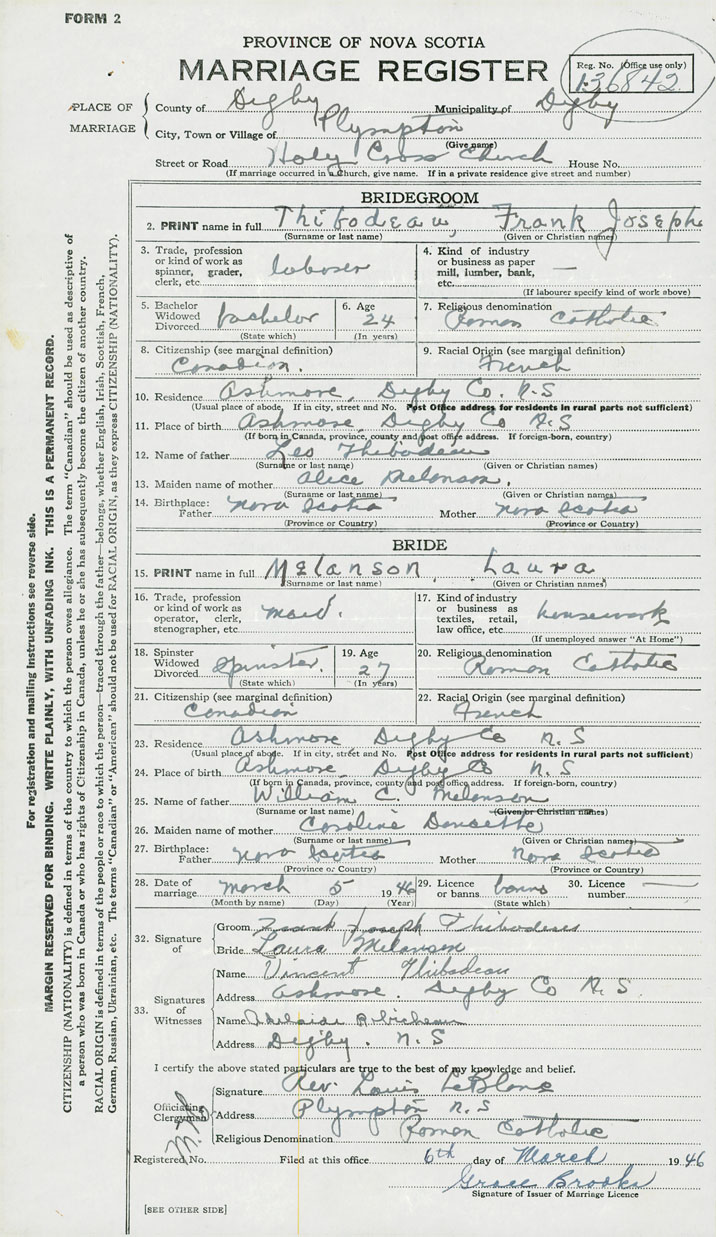 FORM 2
PROVINCE OF NOVA SCOTIA
MARRIAGE REGISTER
Reg. No. (Office use only)
136842
PLACE OF MARRIAGE
County of Digby Municipality of Digby
City, Town or Village of Plympton
(Give name)
Street or Road Holy Cross Church House No.
(If marriage occurred in a Church, give name. If in a private residence give street and number)
BRIDEGROOM
2. PRINT name in full Thibodeau, Frank Joseph
(Surname or last name) (Given or Christian names)
3. Trade, profession or kind of work as spinner, grader, clerk, etc. laborer
4. Kind of industry or business as paper mill, lumber, bank, etc. —
(If labourer specify kind of work above)
5. Bachelor Widowed Divorced bachelor
(State which)
6. Age 24
(In years)
7. Religious denomination
Roman Catholic
8. Citizenship (see marginal definition)
Canadian.
9. Racial Origin (see marginal definition)
French
10. Residence Ashmore, Digby Co. N.S
(Usual place of abode. If in city, street and No. Post Office address for residents in rural parts not sufficient)
11. Place of birth Ashmore, Digby Co N.S
(If born in Canada, province, county and post office address. If foreign-born, country)
12. Name of father Leo Thibodeau
(Surname or last name) (Given or Christian names)
13. Maiden name of mother Alice Melanson.
(Surname or last name) (Given or Christian names)
14. Birthplace: Father Nova Scotia Mother Nova Scotia
(Province or Country) (Province or Country)
BRIDE
15. PRINT name in full Melanson, Laura
(Surname or last name) (Given or Christian names)
16. Trade, profession or kind of work as operator, clerk, stenographer, etc. maid.
17. Kind of industry or business as textiles, retail, law office, etc. housework
(If unemployed answer "At Home")
18. Spinster Widowed Divorced Spinster.
(State which)
19. Age 27
(In years)
20. Religious denomination
Roman Catholic
21. Citizenship (see marginal definition)
Canadian
22. Racial Origin (see marginal definition)
French
23. Residence Ashmore Digby Co N.S
(Usual place of abode. If in city, street and No. Post Office address for residents in rural parts not sufficient)
24. Place of birth Ashmore, Digby Co N.S
(If born in Canada, province, county and post office address. If foreign-born, country)
25. Name of father William C. Melanson
(Surname or last name) (Given or Christian names)
26. Maiden name of mother Caroline Doucette
(Surname or last name) (Given or Christian names)
27. Birthplace: Father Nova Scotia Mother Nova Scotia
(Province or Country) (Province or Country)
28. Date of marriage March 5 1946
(Month by name) (Day) (Year)
29. Licence or banns banns
(State which)
30. Licence number —
32. Signature of
Groom Frank Joseph Thibodeau
Bride Laura Melanson
33. Signatures of Witnesses
Name Vincent Thibodeau
Address Ashmore. Digby Co N.S.
Name Adelaide Robicheau
Address Digby. N.S
I certify the above stated particulars are true to the best of my knowledge and belief.
Officiating Clergyman
Signature Rev. Louis LeBlanc
Address Plympton N.S
Religious Denomination Roman Catholic
Registered No. Filed at this office 6th day of March 1946
Grace Brooks
Signature of Issuer of Marriage Licence
[SEE OTHER SIDE]
For registration and mailing instructions see reverse side.
MARGIN RESERVED FOR BINDING. WRITE PLAINLY, WITH UNFADING INK. THIS IS A PERMANENT RECORD.
CITIZENSHIP (NATIONALITY) is defined in terms of the country to which the person owes allegiance. The term "Canadian" should be used as descriptive of
a person who was born in Canada or who has rights of Citizenship in Canada, unless he or she has subsequently become the citizen of another country.
RACIAL ORIGIN is defined in terms of the people or race to which the person—traced through the father—belongs, whether English, Irish, Scottish, French,
German, Russian, Ukrainian, etc. The terms "Canadian" or "American" should not be used for RACIAL ORIGIN, as they express CITIZENSHIP (NATIONALITY).